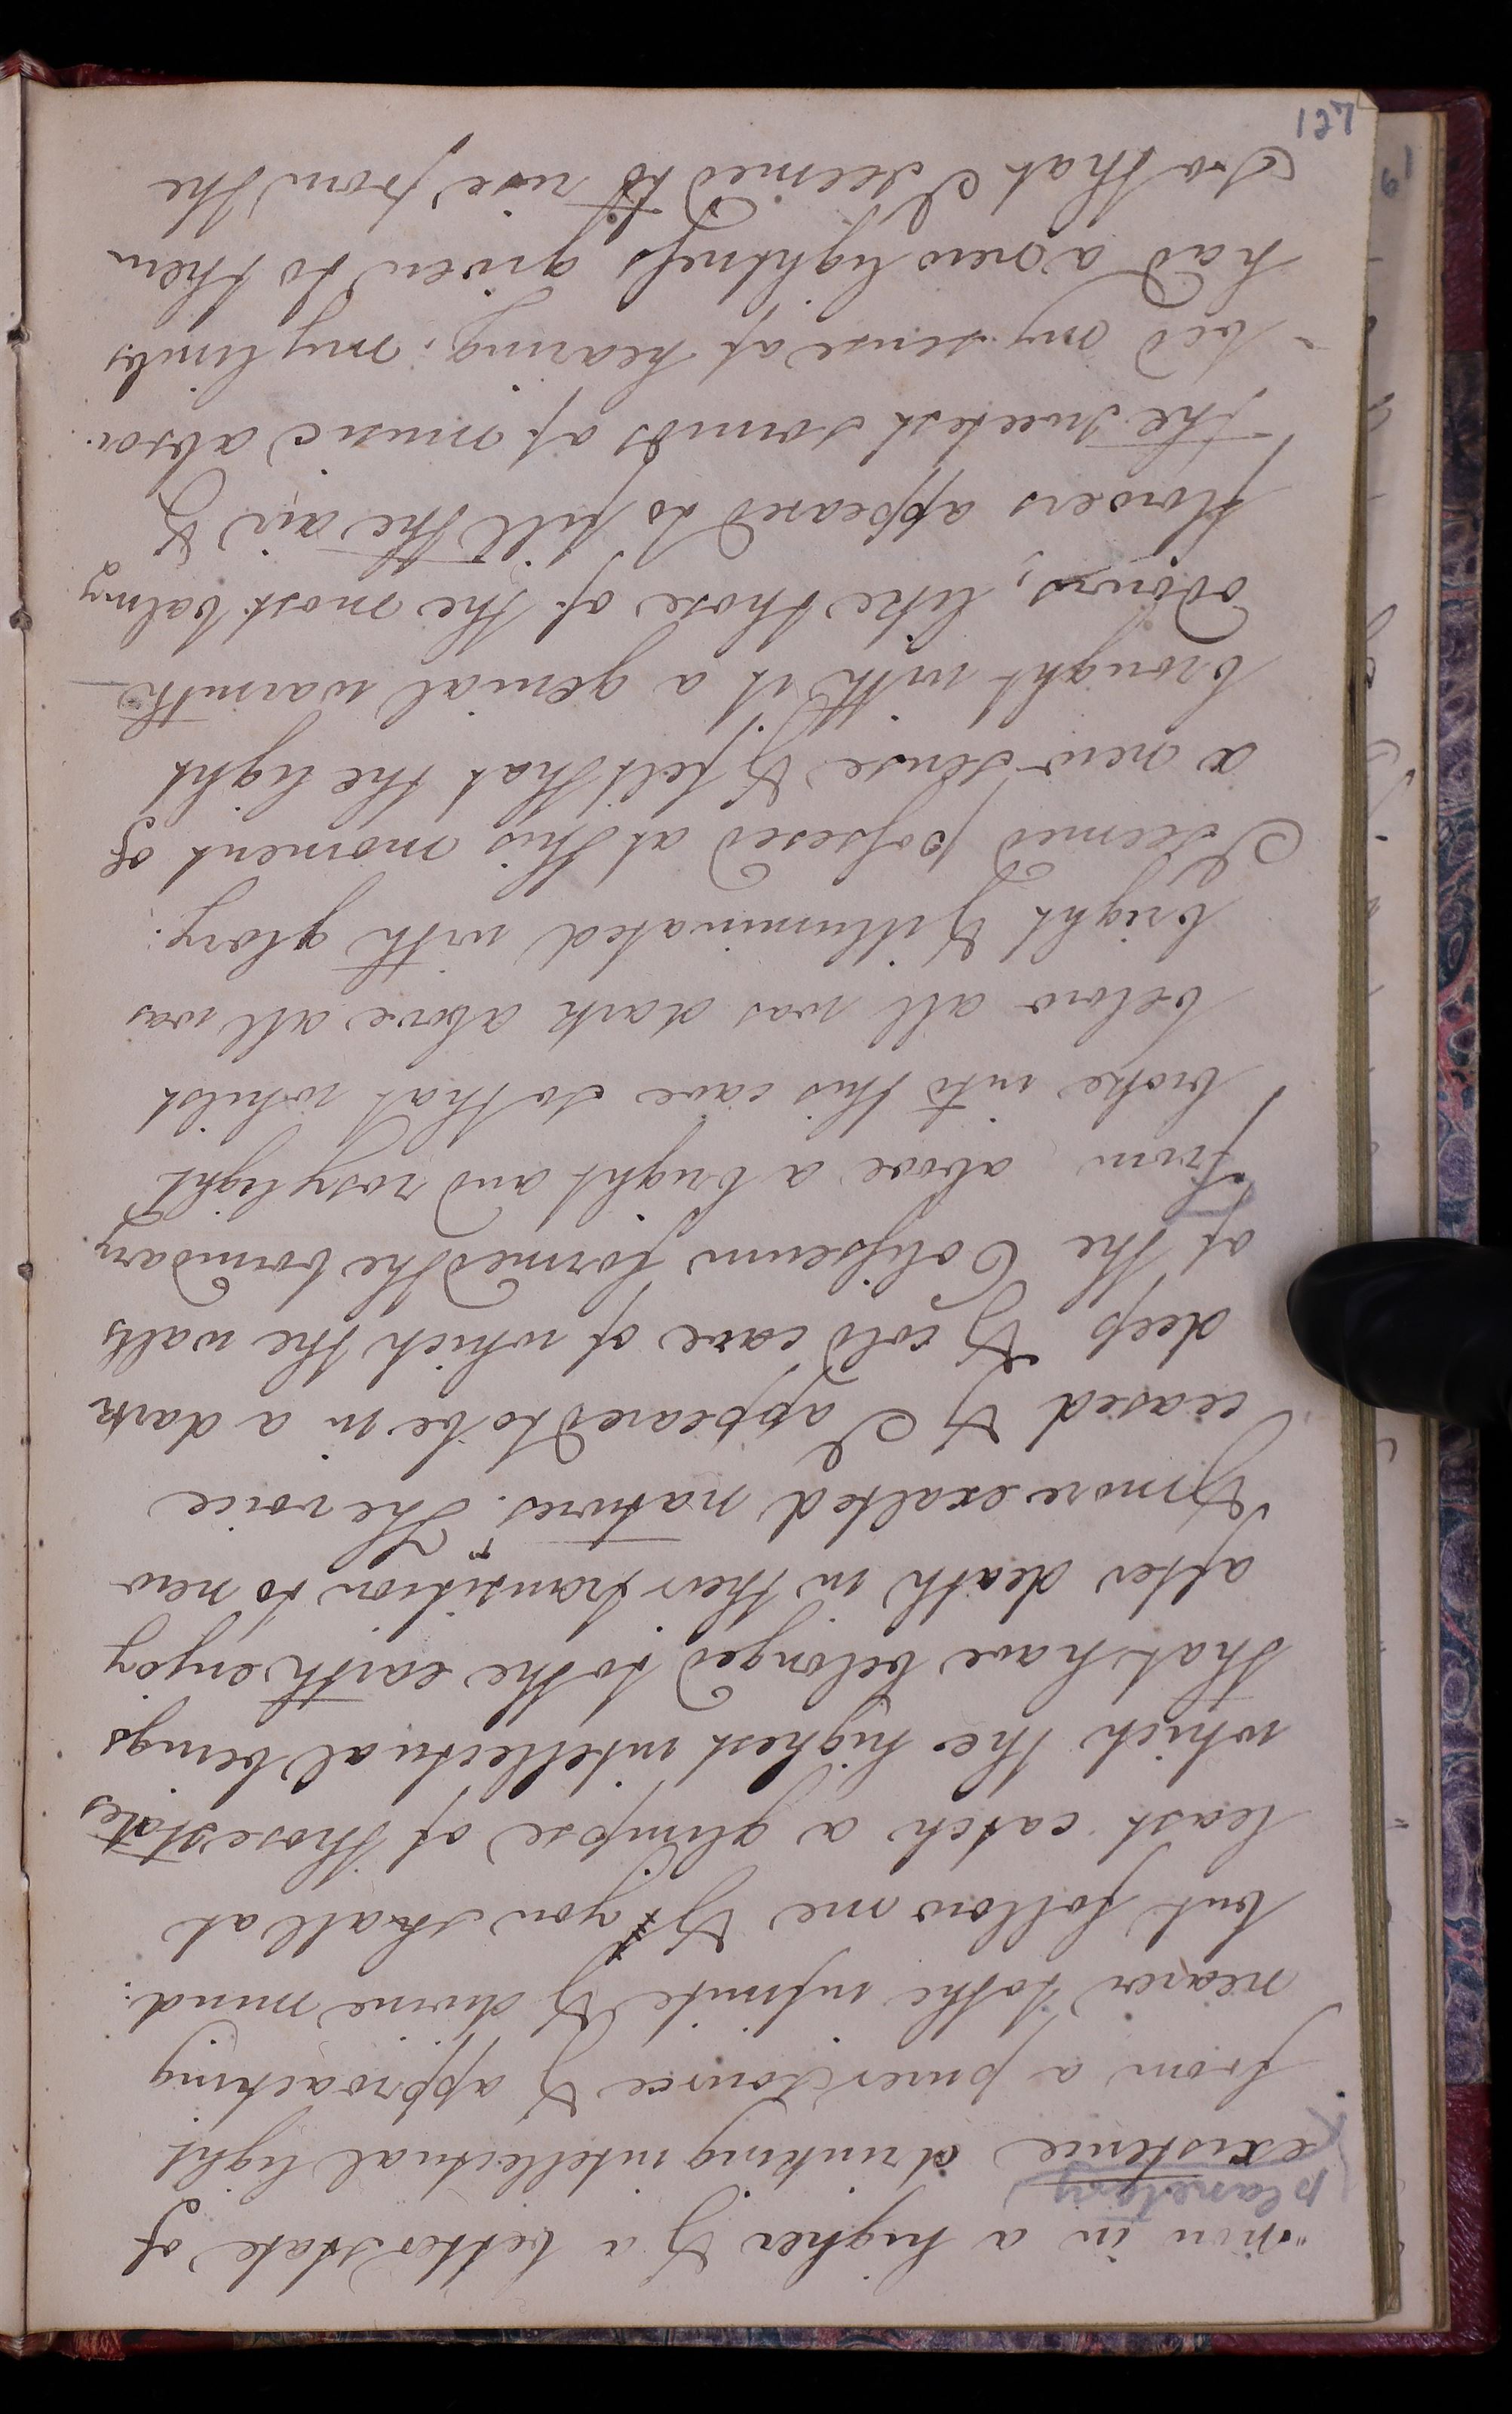 "now in a higher & a better state of
planetary
existence drinking intellectual light
from a purer source & approaching
nearer to the infinite & divine mind:
but follow me & you shall at
least catch a glimpse of those states
which the highest intellectual beings
that have belonged to the earth enjoy
after death in their transition to new
& more exalted natures." The voice
ceased & I appeared to be in a dark
deep & cold cave of which the walls
of the Colyseum formed the boundary
From above a bright and rosy light
broke into this cave so that whilst
below all was dark above all was
bright & illuminated with glory:
I seemed possesed at this moment of
a new sense & felt that the light
brought with it a genial warmth
odours, like those of the most balmy
flowers appeared to fill the air &
the sweetest sounds of music absor
-bed my sense of hearing; my limbs
had a new lightness given to them
so that I seemed to rise from the
127